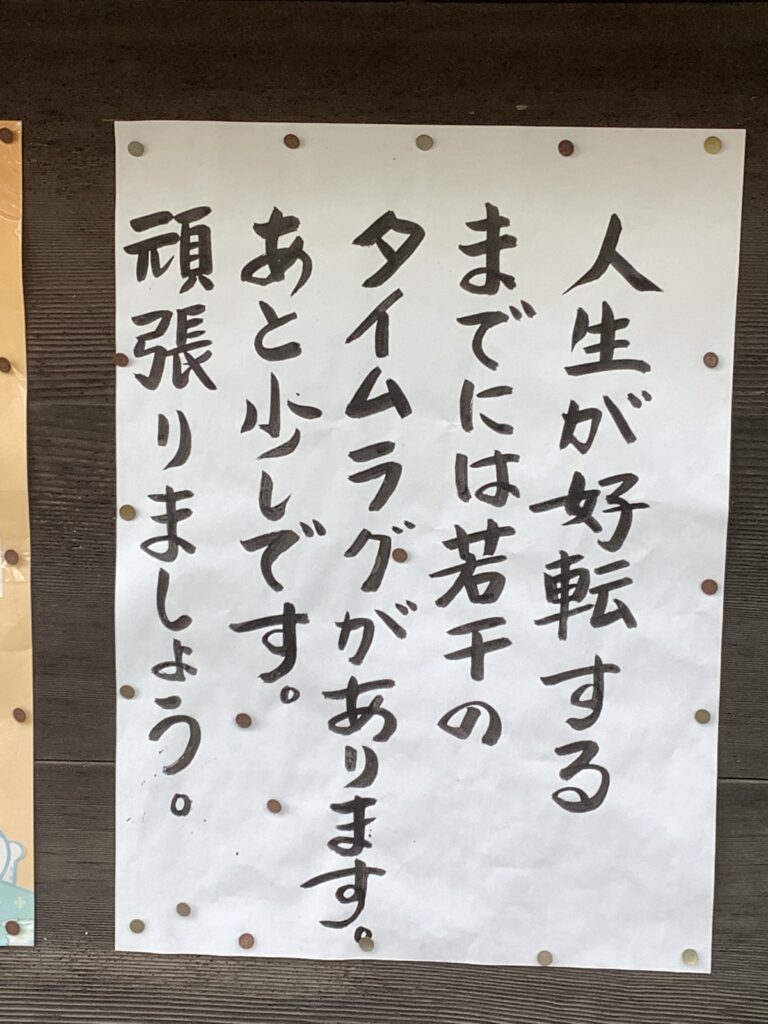 人生が好転する
までには若干の
タイムラグがあります。
あと少しです。
頑張りましょう。